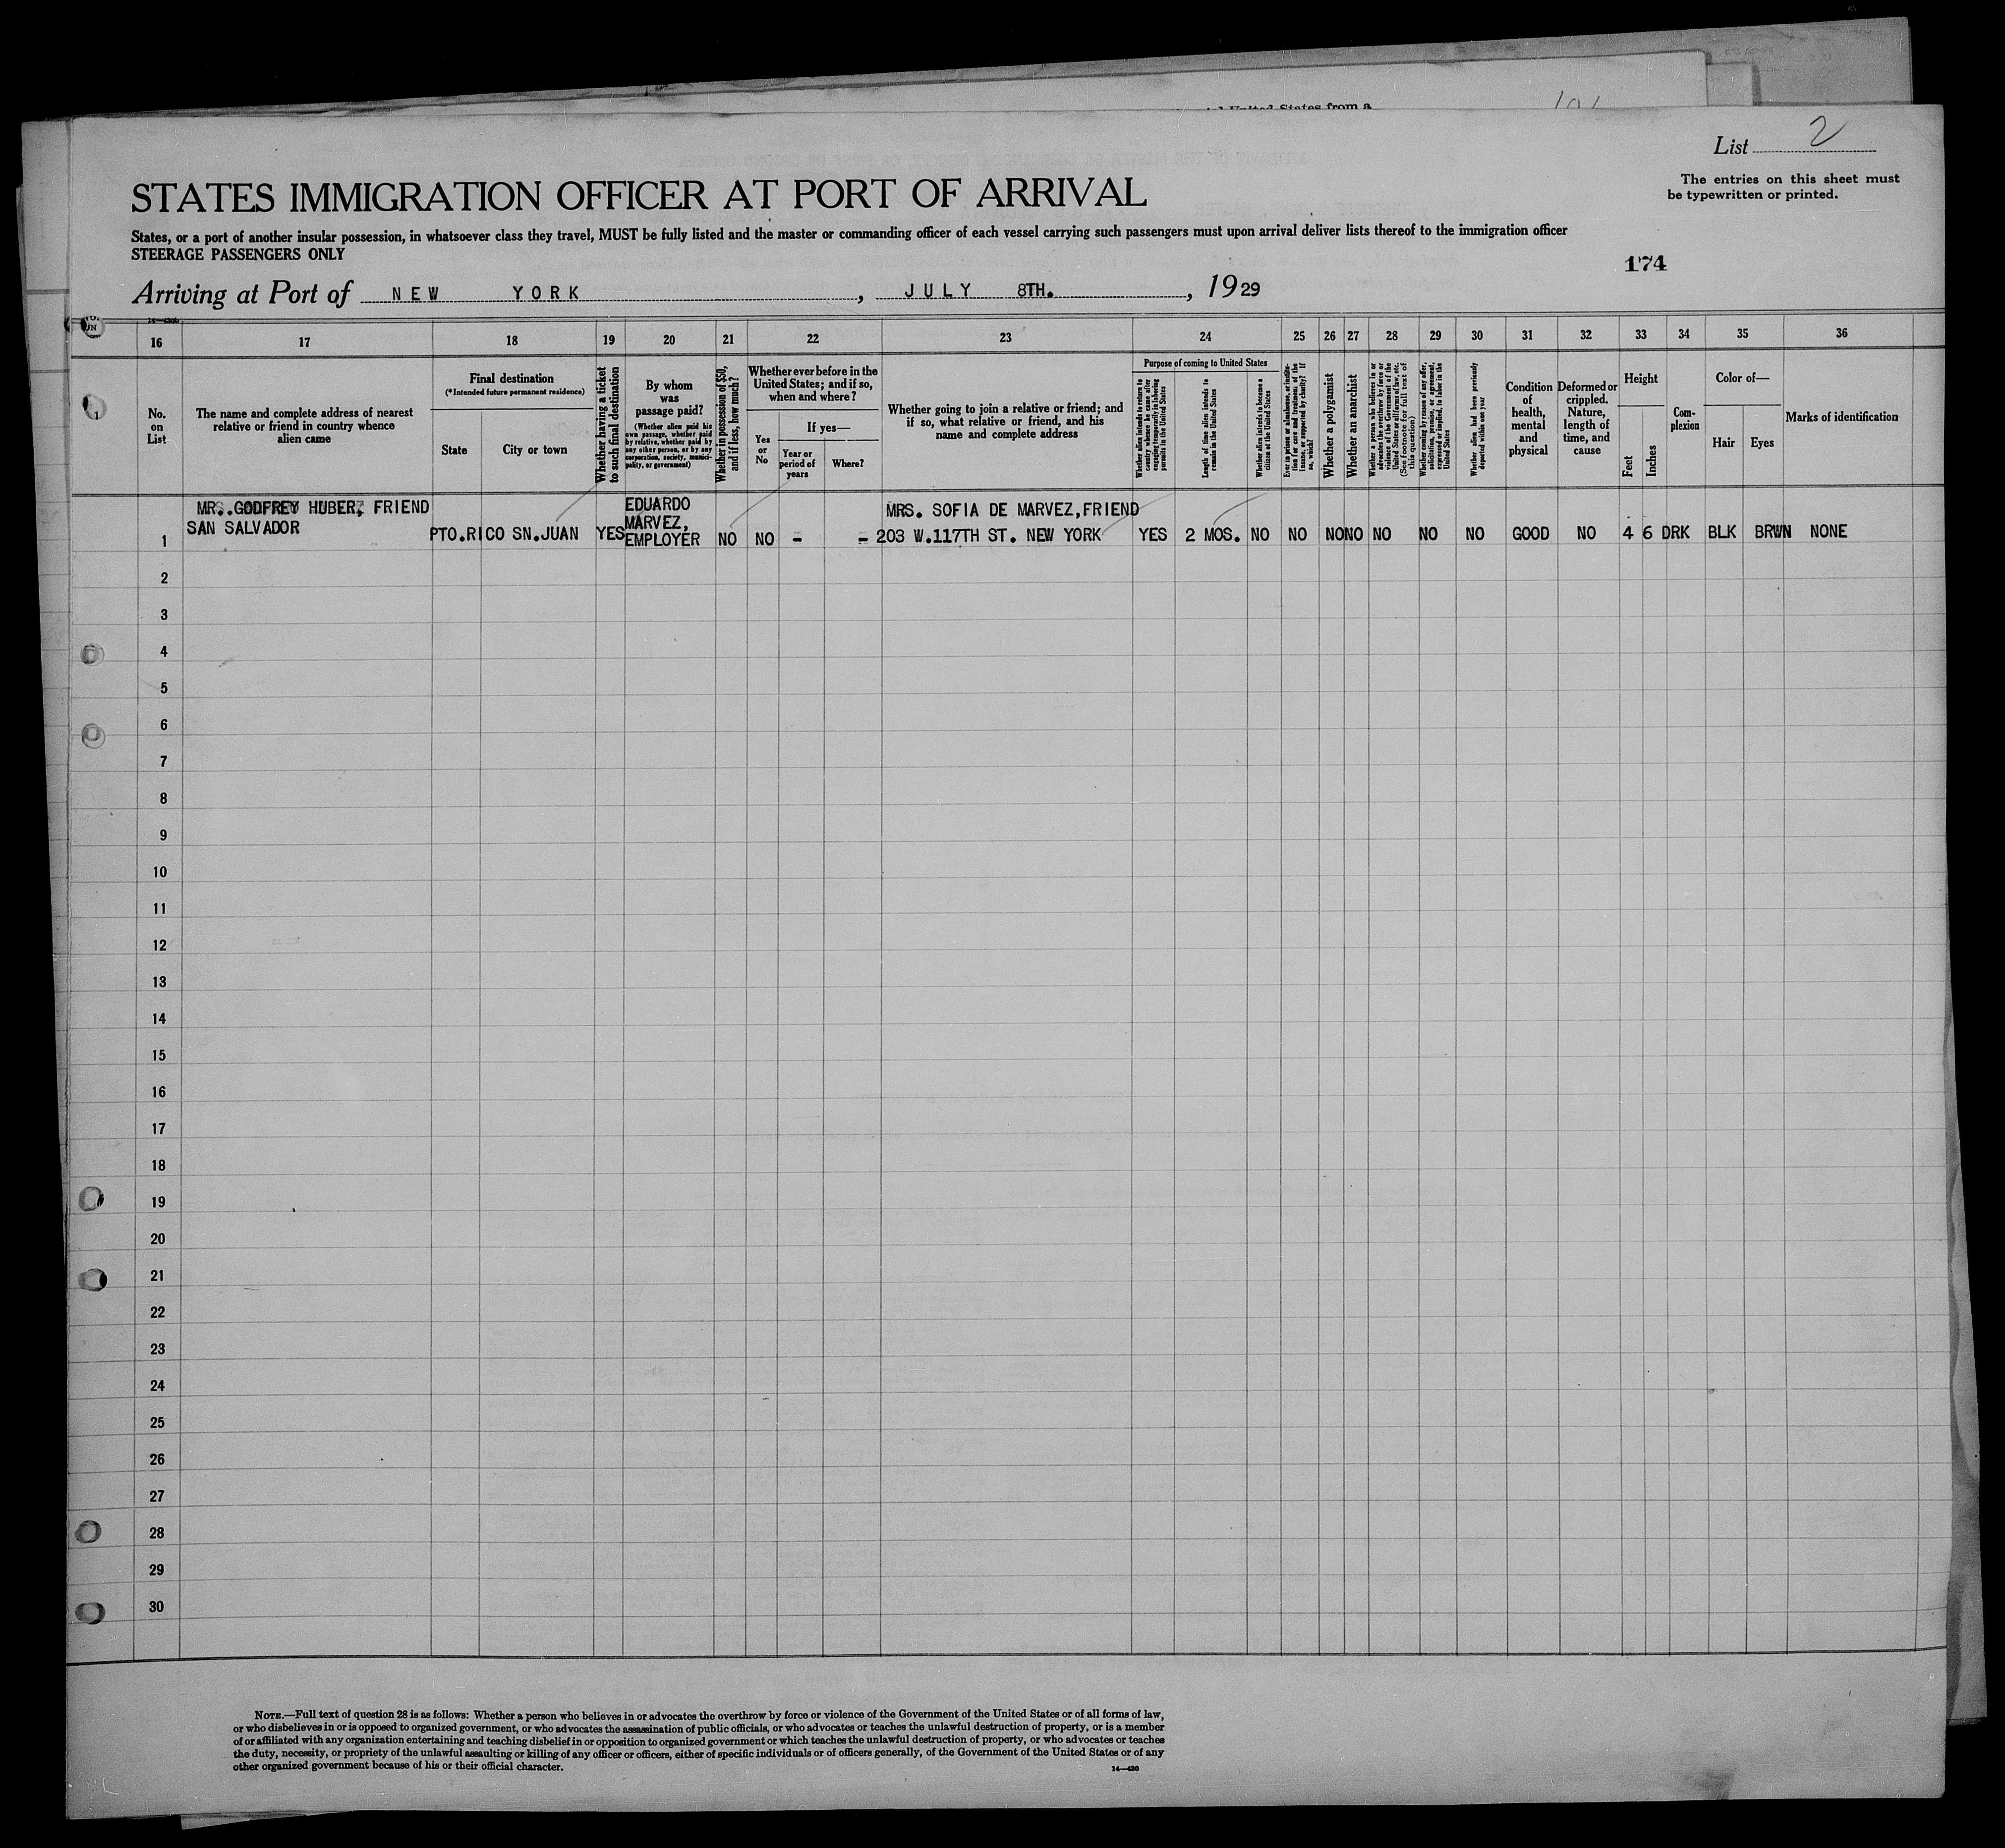 List 2
The entries on this sheet must
be typewritten or printed.
STATES IMMIGRATION OFFICER AT PORT OF ARRIVAL
States, or a port of another insular possession, in whatsoever class they travel, MUST be fully listed and the master or commanding officer of each vessel carrying such passengers must upon arrival deliver lists thereof to the immigration officer
STEERAGE PASSENGERS ONLY
174
Arriving at Port of NEW YORK, JULY 8TH., 1929
16 17 18 19 20 21 22 23 24 25 26 27 28 29 30 31 32 33 34 35 36
No.
on
List
The name and complete address of nearest
relative or friend in country whence
alien came
Final destination
(*Intended future permanent residence)
State
City or town
Whether having a ticket
to such final destination
By whom
was
passage paid?
(Whether alien paid his
own passage, whether paid
by relative, whether paid by
any other person, or by any
corporation, society, munici-
pality, or government)
Whether in possession of $50,
and if less, how much?
Whether ever before in the
United States; and if so,
when and where?
Yes
or
No
If yes—
Year or
period of
years
Where?
Whether going to join a relative or friend; and
if so, what relative or friend, and his
name and complete address
Purpose of coming to United States
Whether alien intends to return to
country whence he came after
engaging temporarily in laboring
pursuits in the United States
Length of time alien intends to
remain in the United States
Whether alien intends to become a
citizen of the United States
Ever in prison or almshouse, or institu-
tion for care and treatment of the
insane, or supported by charity? If
so, which?
Whether a polygamist
Whether an anarchist
Whether a person who believes in or
advocates the overthrow by force or
violence of the Government of the
United States or all forms of law, etc.
(See footnote for full text of
this question)
Whether coming by reason of any offer,
solicitation, promise, or agreement,
expressed or implied, to labor in the
United States
Whether alien had been previously
deported within one year
Condition
of
health,
mental
and
physical
Deformed or
crippled.
Nature,
length of
time, and
cause
Height
Feet
Inches
Com-
plexion
Color of—
Hair
Eyes
Marks of identification
MR. GODFREY HUBER, FRIEND
SAN SALVADOR
EDUARDO
MARVEZ,
EMPLOYER
MRS. SOFIA DE MARVEZ, FRIEND
1 PTO.RICO SN.JUAN YES NO NO - - 203 W.117TH ST. NEW YORK YES 2 MOS. NO NO NO NO NO NO NO GOOD NO 4 6 DRK BLK BRWN NONE
2
3
4
5
6
7
8
9
10
11
12
13
14
15
16
17
18
19
20
21
22
23
24
25
26
27
28
29
30
NOTE.—Full text of question 28 is as follows: Whether a person who believes in or advocates the overthrow by force or violence of the Government of the United States or of all forms of law,
or who disbelieves in or is opposed to organized government, or who advocates the assassination of public officials, or who advocates or teaches the unlawful destruction of property, or is a member
of or affiliated with any organization entertaining and teaching disbelief in or opposition to organized government or which teaches the unlawful destruction of property, or who advocates or teaches
the duty, necessity, or propriety of the unlawful assaulting or killing of any officer or officers, either of specific individuals or of officers generally, of the Government of the United States or of any
other organized government because of his or their official character.
14—430